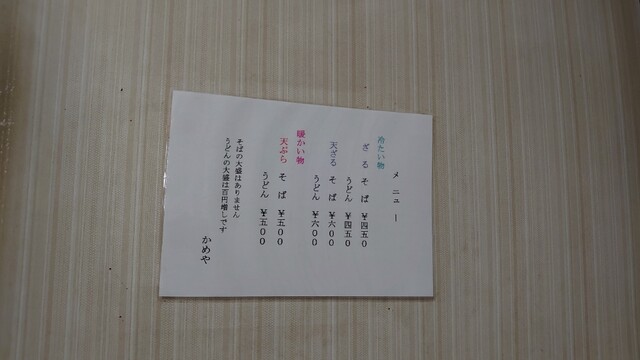 メニュー
冷たい物
ざる そば ¥四五0
うどん ¥四五0
天ざる そば ¥六00
うどん ¥六00
暖かい物
天ぷら そば ¥五00
うどん ¥五00
そばの大盛はありません
うどんの大盛は百円増しです
かめや